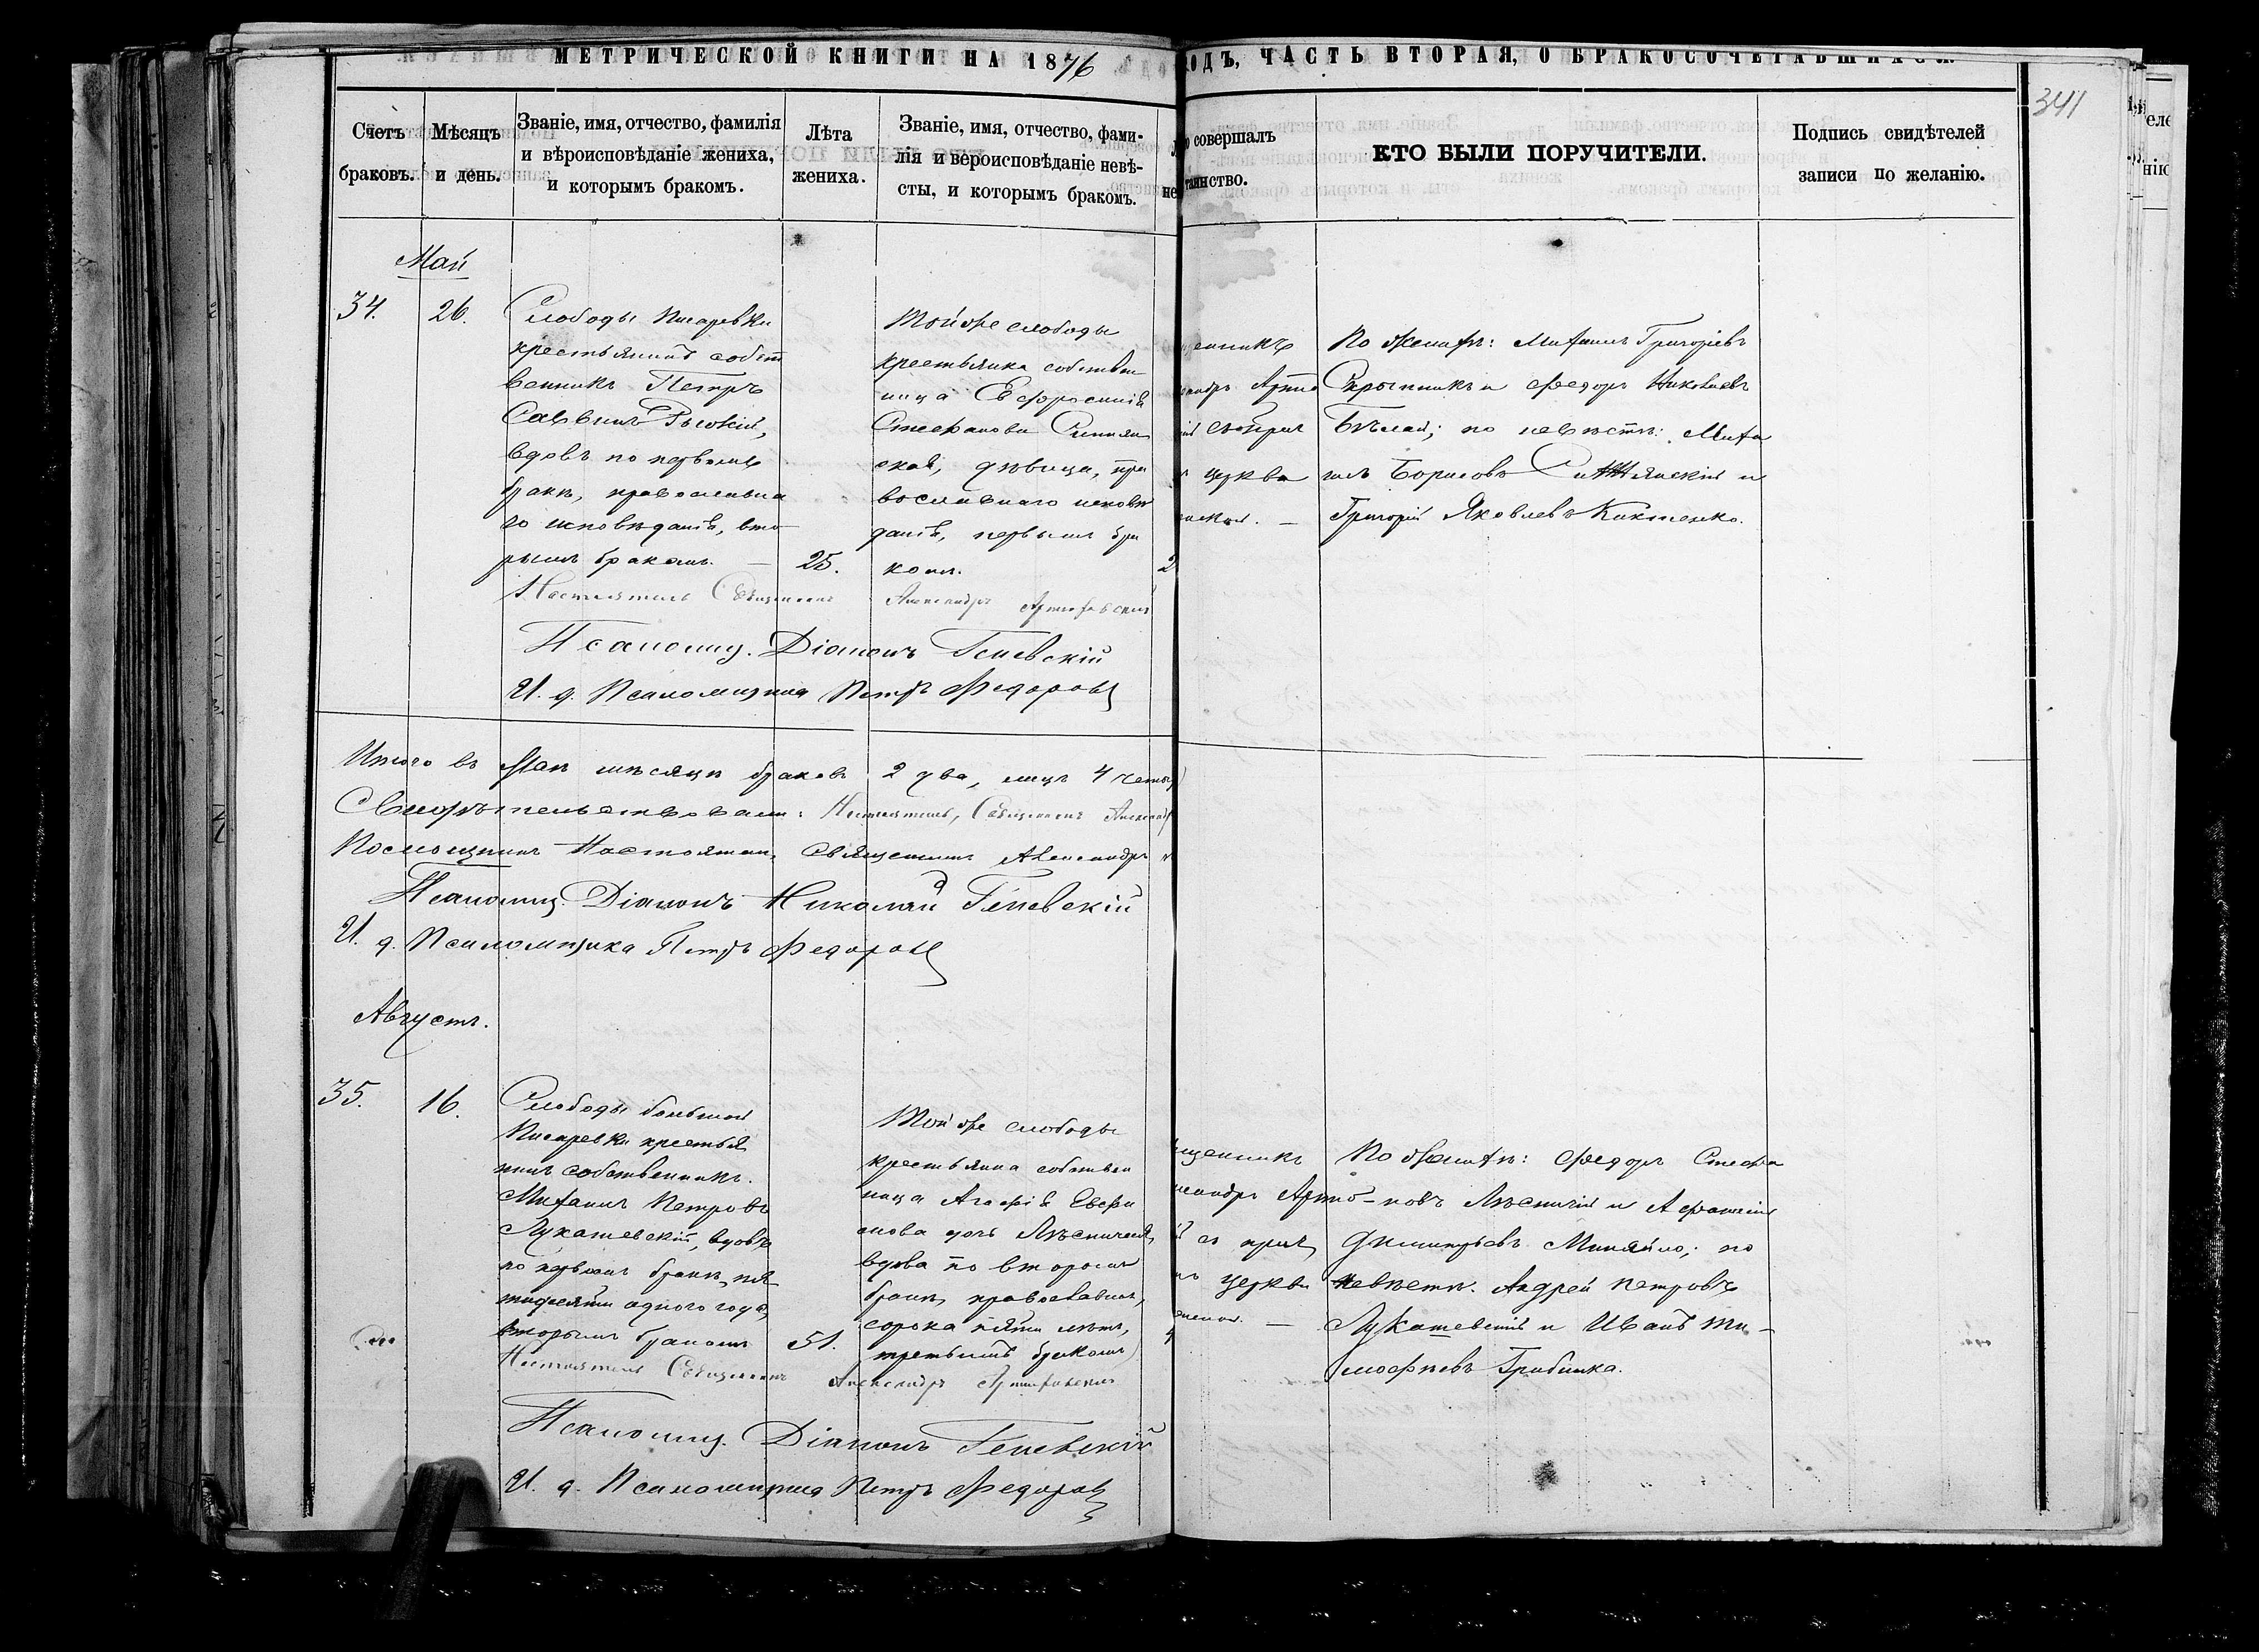 МЕТРИЧЕСКОЙ КНИГИ НА 1876
ОДЪ, ЧАСТЬ ВТОРАЯ, О БРАКОСОЧЕТАВШИХСЯ.
341
Счетъ браковъ.
Мѣсяцъ и день.
Званіе, имя, отчество, фамилія
и вѣроисповѣданіе жениха,
и которымъ бракомъ.
Лѣта
жениха.
Званіе, имя, отчество, фами-
лія и вероисповѣданіе невѣ-
сты, и которымъ бракомъ.
о совершалъ
таинство.
КТО БЫЛИ ПОРУЧИТЕЛИ.
Подпись свидѣтелей
записи по желанію.
Май
34.
26.
Слободы Писаревки
крестьянинъ собст
венникъ Петръ
Саввинъ
вдовъ по первомъ
бракѣ, православна
го исповѣданія, вто
рымъ бракомъ. — 25.
Той же слободы
крестьянка собствен
ница Евфросинія
Стефанова
ская, дѣвица, пра
вославнаго исповѣ
данія, первымъ бра
комъ.
2
щенникъ
сандръ Артю
съ прич
церкви
По женихѣ: Михаилъ Григоріевъ
Скрынникъ и Федоръ Николаевъ
Бѣлай; по невѣстѣ: Миха
илъ Борисовъ и
Григорій Яковлевъ Кикотенко.
Настоятель Священникъ Александръ Артюховскій
Псаломщ. Діаконъ Геневскій
И. д. Псаломщика Петръ Федоровъ
Итого въ Маѣ мѣсяцѣ браковъ 2 два, лицъ 4 четы
Свидѣтельствовали: Настоятель, Священникъ Александр
Помощникъ Настоятеля, Священникъ Александръ
Псаломщ. Діаконъ Николай Геневскій
И. д. Псаломщика Петръ Федоровъ
Августъ.
35.
16.
Слободы большой
Писаревки крестья
нинъ собственникъ
Михаилъ Петровъ
Лукашевскій, вдовъ
по первомъ бракѣ, пя
тидесяти одного года,
вторымъ бракомъ 51.
Той же слободы
крестьянка собствен
ница Агафія Евфи
мова дочь Лѣсничая,
вдова по второмъ
бракѣ, православная,
сорока пяти лѣтъ,
третьимъ бракомъ
4
щенникъ
сандръ Артю
съ прич
церкви
По женихѣ: Федоръ Стефа
-новъ Лѣсничій и Афанасій
Димитріевъ Миняйло; по
невѣстѣ: Андрей Петровъ
Лукашевскій и Иванъ Ти-
мофѣевъ Грибинка.
Настоятель Священникъ Александръ Артюховскій
Псаломщ. Діаконъ Геневскій
И. д. Псаломщика Петръ Федоровъ